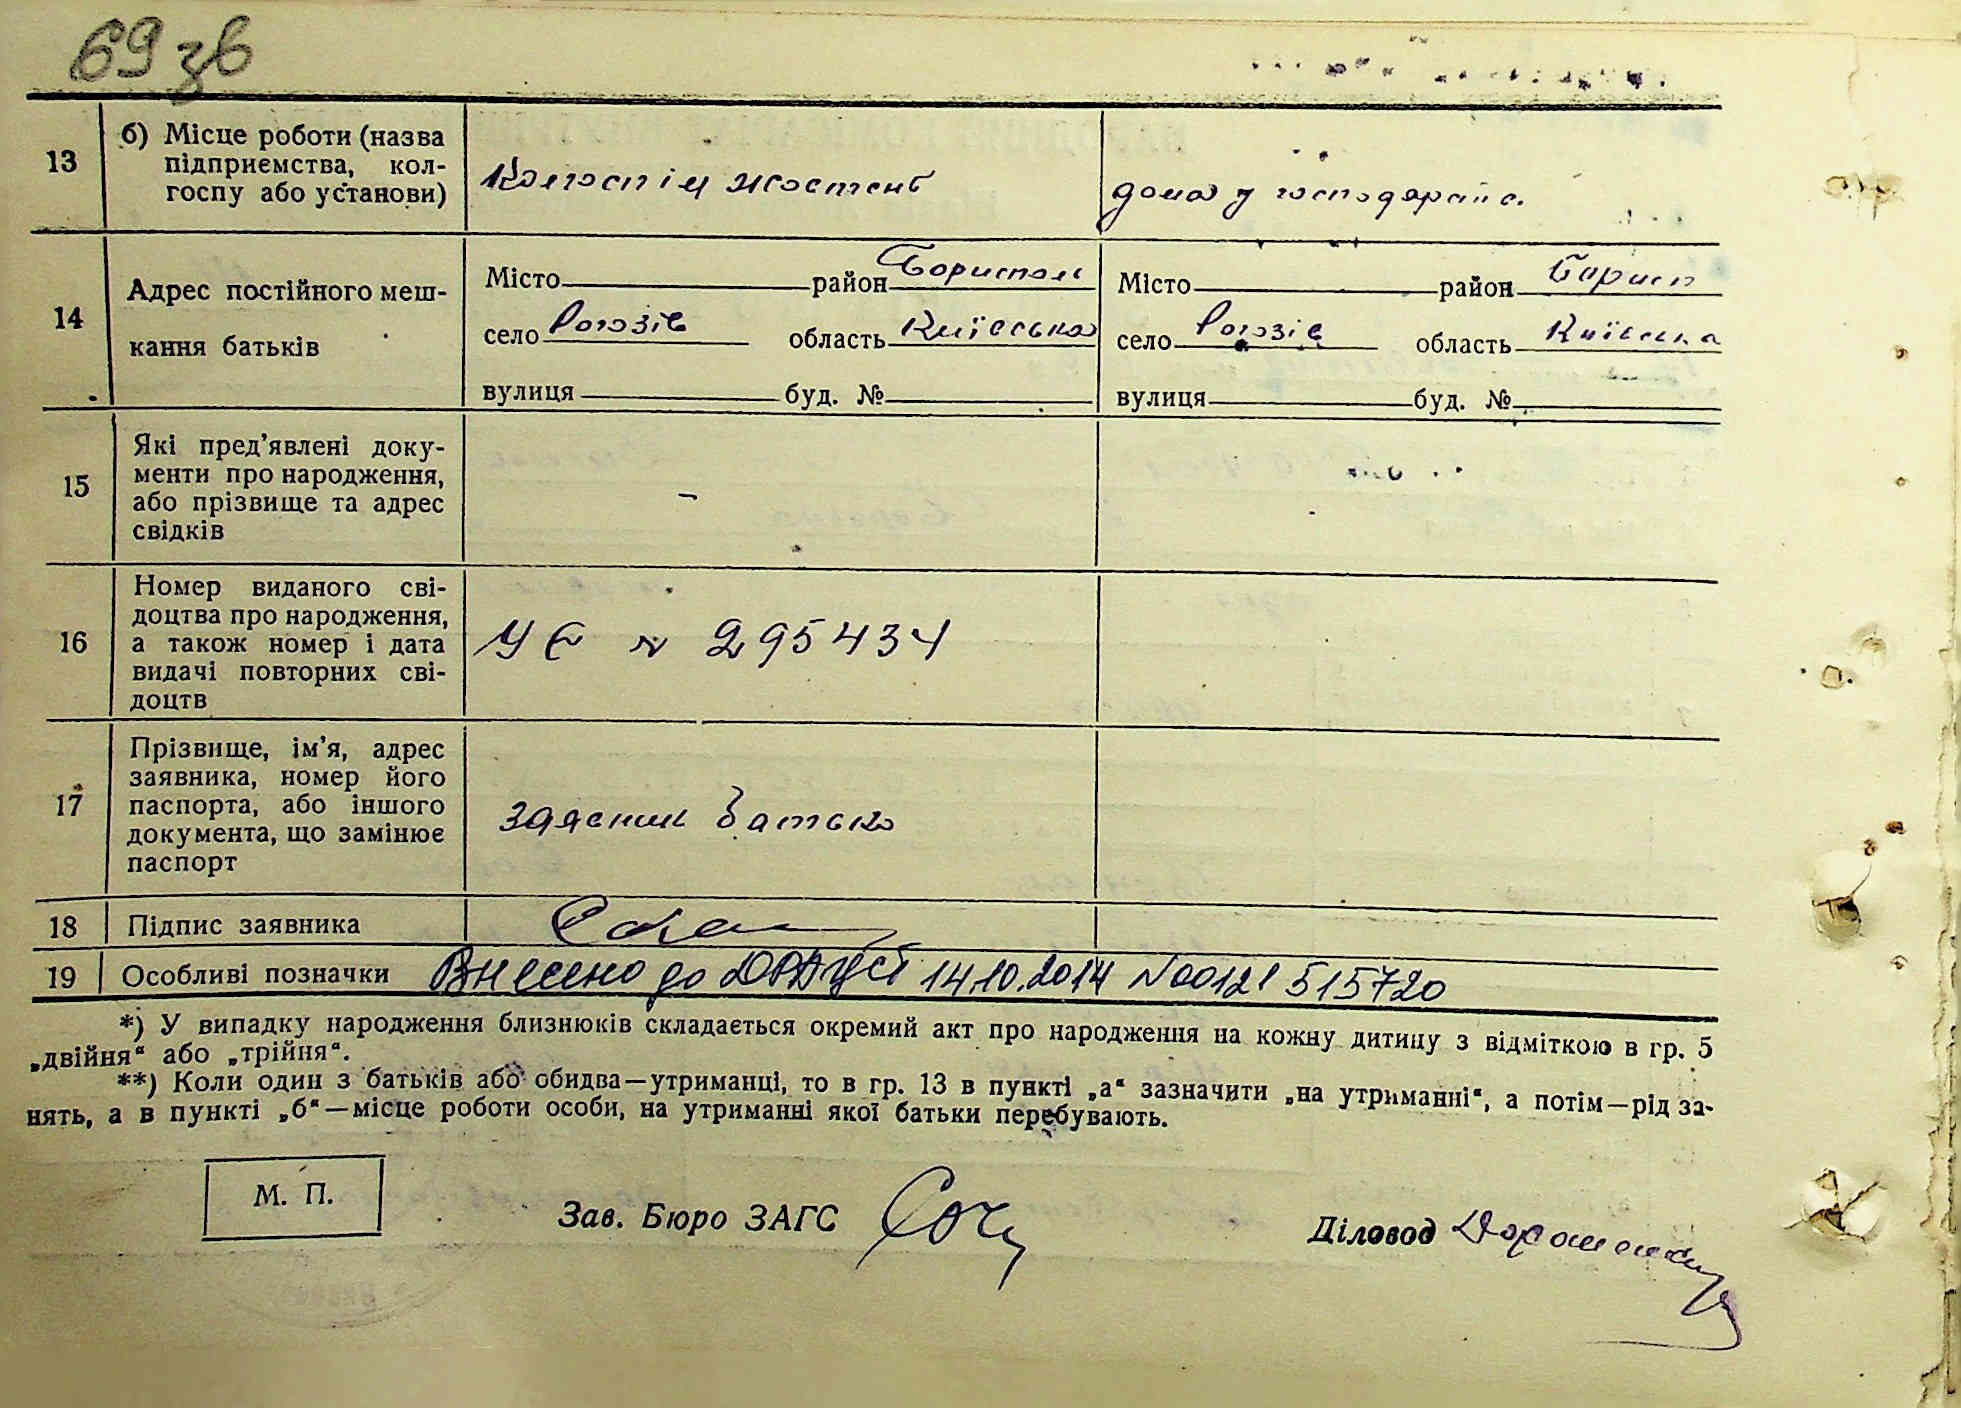 69 зв
13 б) Місце роботи (назва підприємства, кол-
госпу або установи) Колгосп ім дома у господарстві
14 Адрес постійного меш-
кання батьків
Місто район Бориспол Місто район Борисп
село Рогозів область Київська село Рогозів область Київська
вулиця буд. № вулиця буд. №
15 Які пред’явлені доку-
менти про народження,
або прізвище та адрес
свідків -
16 Номер виданого сві-
доцтва про народження,
а також номер і дата
видачі повторних сві-
доцтв УЄ N 295434
17 Прізвище, ім’я, адрес
заявника, номер його
паспорта, або іншого
документа, що замінює
паспорт заявник батько
18 Підпис заявника
19 Особливі позначки Внесено до ДРАЦСГ 14.10.2014 N 00121515720
*) У випадку народження близнюків складається окремий акт про народження на кожну дитину з відміткою в гр. 5
„двійня“ або „трійня“.
**) Коли один з батьків або обидва—утриманці, то в гр. 13 в пункті „а“ зазначити „на утриманні“, а потім—рід за-
нять, а в пункті „б“—місце роботи особи, на утриманні якої батьки перебувають.
М. П.
Зав. Бюро ЗАГС
Діловод